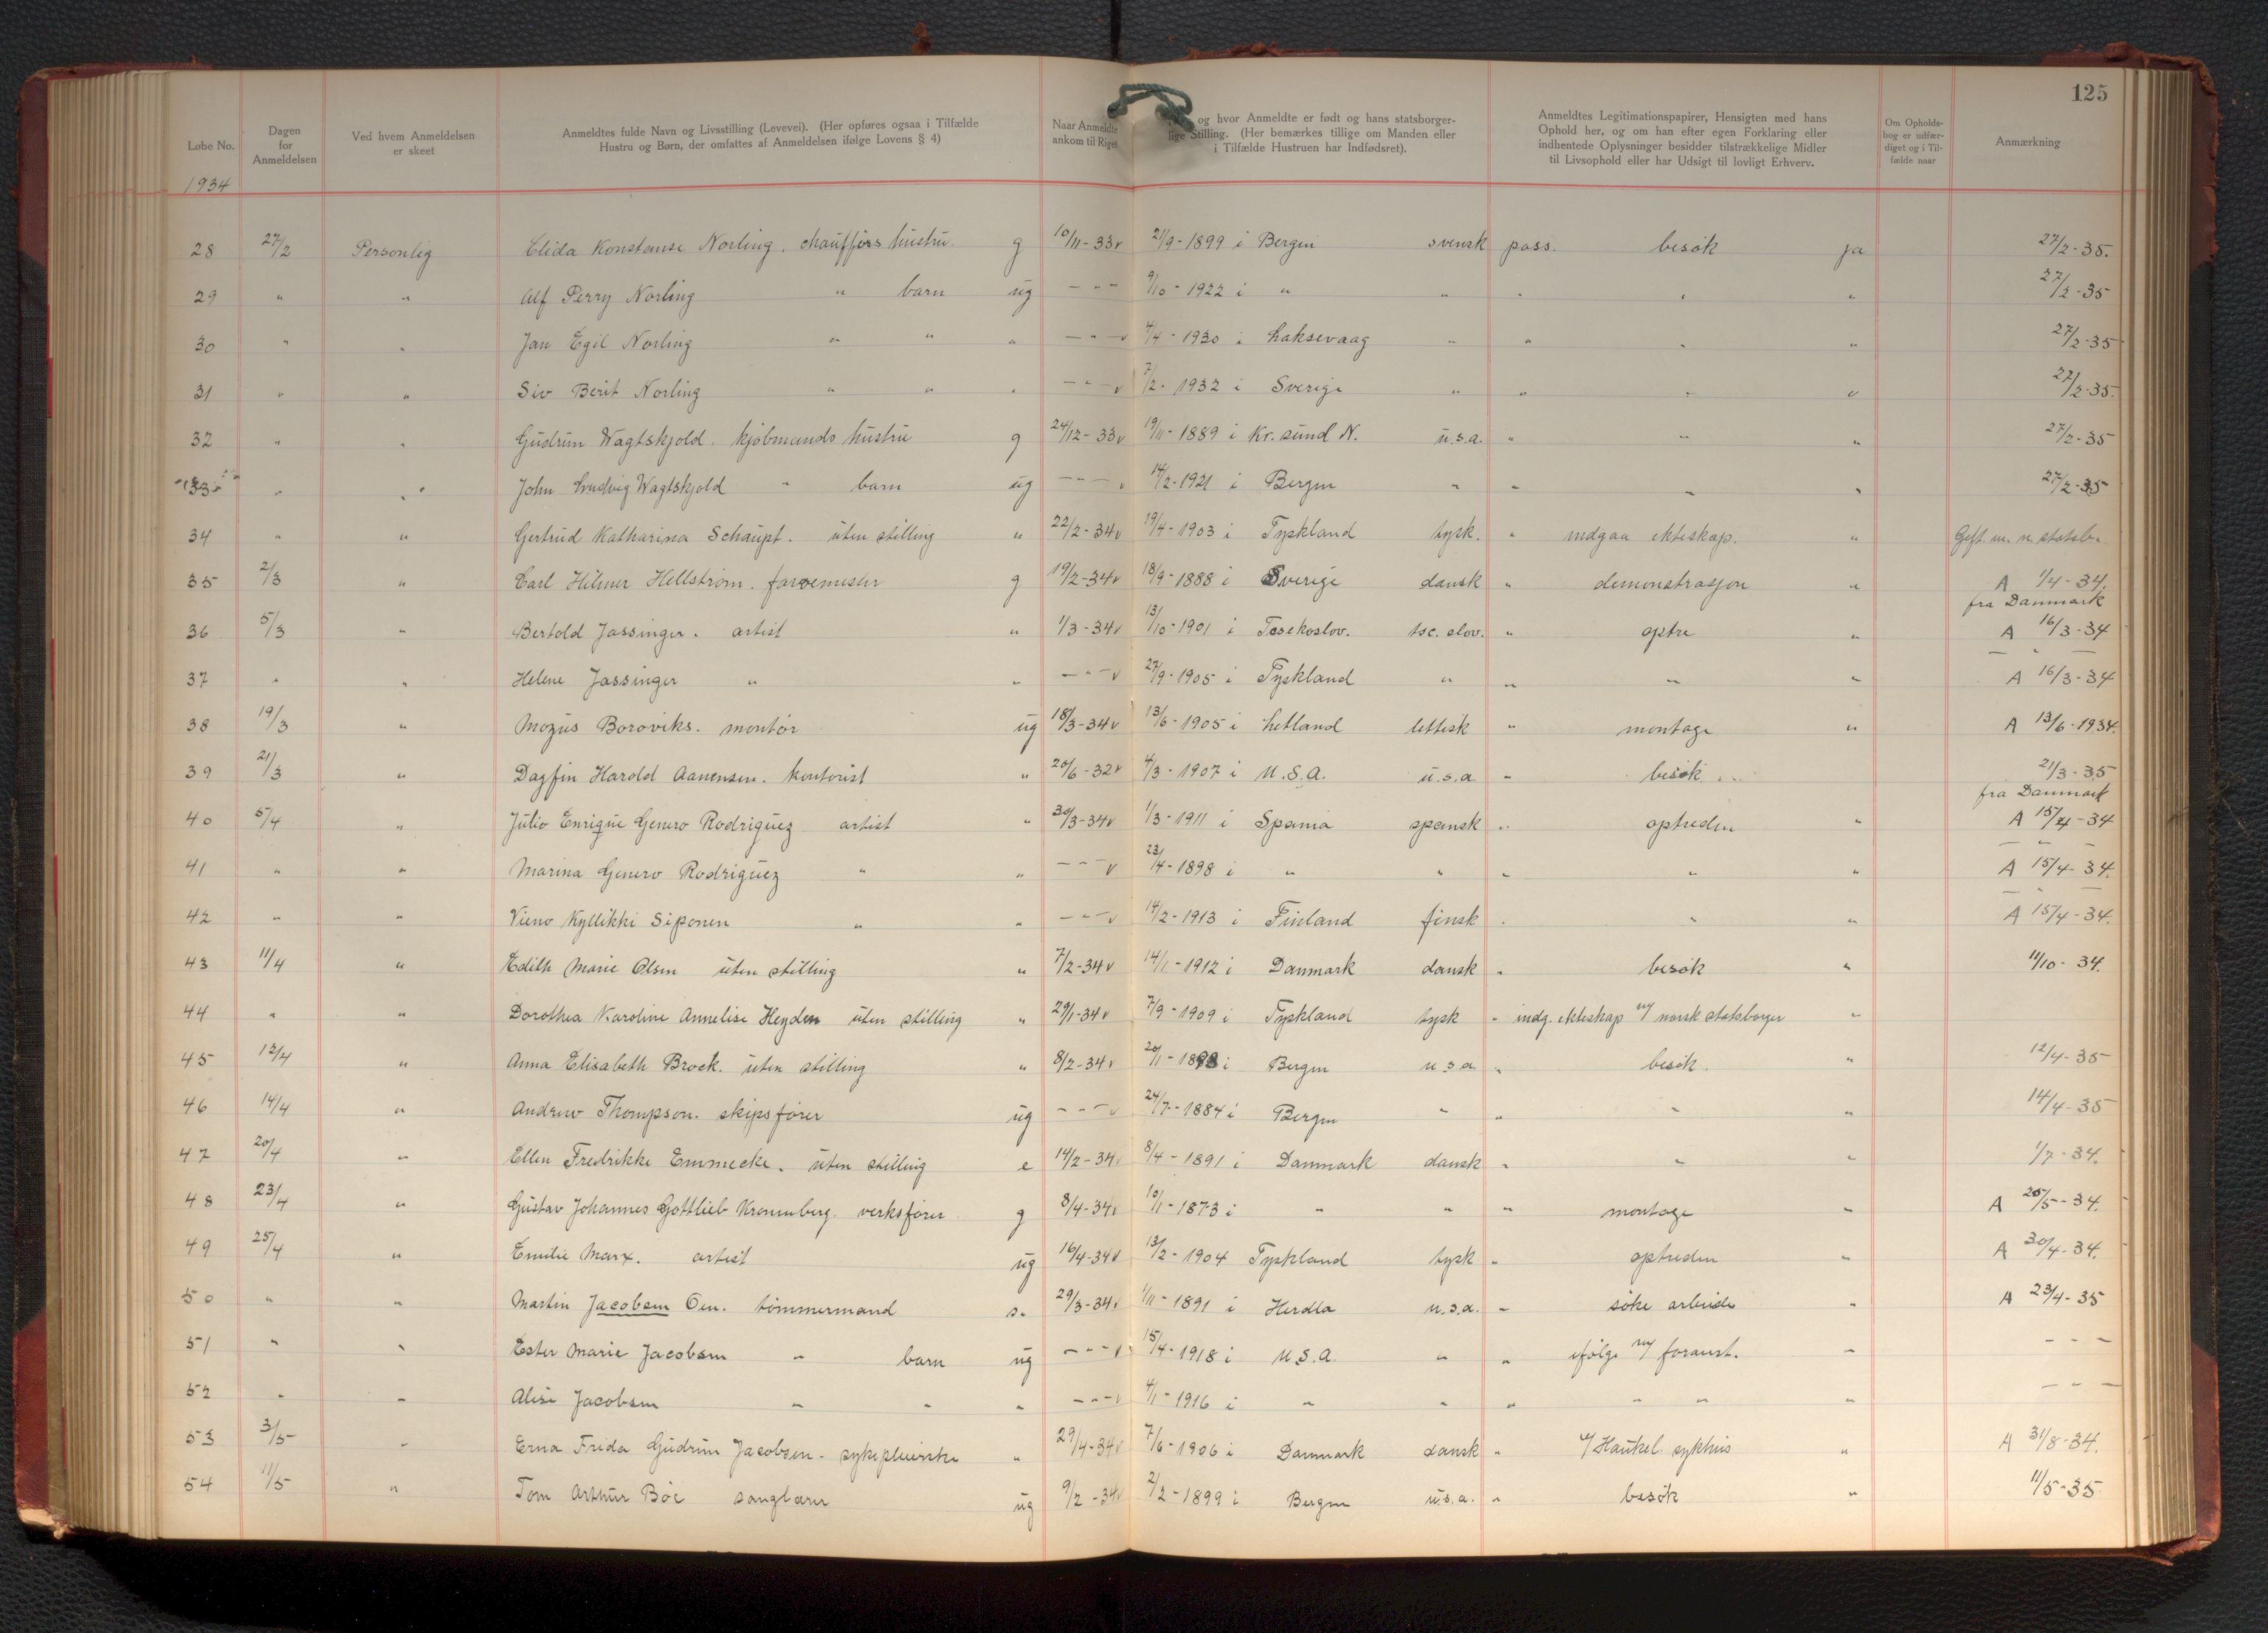 125
Løbe No.
Dagen for Anmeldelsen
Ved hvem Anmeldelsen er skeet
Anmeldtes fulde Navn og Livsstilling (Levevei). (Her opføres ogsaa i Tilfælde Hustru og Børn, der omfattes af Anmeldelsen ifølge Lovens § 4)
Naar Anmeldte ankom til Riget
og hvor Anmeldte er født og hans statsborgerlige Stilling. (Her bemærkes tillige om Manden eller i Tilfælde Hustruen har Indfødsret).
Anmeldtes Legitimationspapirer, Hensigten med hans Ophold her, og om han efter egen Forklaring eller indhentede Oplysninger besidder tilstrækkelige Midler til Livsophold eller har Udsigt til lovligt Erhverv.
Om Opholdsbog er udfærdiget og i Tilfælde naar
Anmærkning
1934
28 27/2 Personlig Elida Konstanse Norling. chaufførs hustru. g 10/11-33 v 21/9-1899 i Bergen svensk pass. besøk ja 27/2-35.
29 " " Alf Perry Norling " barn ug - " - 9/10-1922 i " " " " " 27/2-35
30 " " Jan Egil Norling " " " - " - v 4/4-1930 i Laksevaag " " " " 27/2-35
31 " " Siv Berit Norling " " " - " - v 7/2-1932 i Sverige " " " " 27/2-35.
32 " " Gudrun Wagtskjold. kjøbmands hustru g 24/12-33 v 19/11-1889 i Kr. sund N. u.s.a. " " " 27/2-35
33 " " John Ludvig Wagtskjold " barn ug - " - v 14/2-1921 i Bergen " " " " 27/2-35
34 " " Gertrud Katharina Schaupt. uten stilling " 22/2-34 v 19/4-1903 i Tyskland tysk. " indgaa ekteskap. " Gift m. n. statsb.
35 2/3 " Carl Hilmer Hellström. farvemester g 19/2-34 v 18/9-1888 i Sverige dansk " demonstrasjon " A 1/4-34.
36 5/3 " Bertold Jassinger. artist " 1/3-34 v 13/10-1901 i Tsekoslov. tsc. slov. " optre " fra Danmark A 16/3-34
37 " " Helene Jassinger " " - " - v 27/9-1905 i Tyskland " " " " - " - A 16/3-34
38 19/3 " Mozus Boroviks. montør ug 18/3-34 v 13/6-1905 i Letland lettisk " montage " A 13/6-1934.
39 21/3 " Dagfin Harold Aanensen. kontorist " 20/6-32 v 4/3-1907 i U.S.A. u.s.a. " besøk " 21/3-35
40 5/4 " Julio Enrique Genero Rodriguez artist " 30/3-34 v 1/3-1911 i Spania spansk " optreden " fra Danmark A 15/4-34
41 " " Marina Genero Rodriguez " " - " - v 23/4-1898 i " " " " " - " - A 15/4-34.
42 " " Vieno Kyllikki Siponen " " - " - v 14/2-1913 i Finland finsk " " " - " - A 15/4-34.
43 11/4 " Edith Marie Olsen uten stilling " 7/2-34 v 14/1-1912 i Danmark dansk " besøk " 11/10-34.
44 " " Dorothea Karoline Annelise Heyden uten stilling " 29/1-34 v 7/9-1909 i Tyskland tysk " indg. ekteskap m/ norsk statsborger "
45 12/4 " Anna Elisabeth Brock. uten stilling " 8/2-34 v 20/1-1898 i Bergen u.s.a. " besøk. " 12/4-35
46 14/4 " Andrew Thompson. skipsfører ug - " - v 24/7-1884 i Bergen " " " " 14/4-35
47 20/4 " Ellen Fredrikke Emmecke. uten stilling e 14/2-34 v 8/4-1891 i Danmark dansk " " " 1/7-34.
48 23/4 " Gustav Johannes Gottlieb Kronenberg. verksfører g 8/4-34 v 10/1-1873 i " " " montage " A 25/5-34.
49 25/4 " Emilie Marx. artist ug 16/4-34 v 13/2-1904 Tyskland tysk " optreden " A 30/4-34.
50 " " Martin Jacobsen Oen. tømmermand s. 29/3-34 v 1/11-1891 i Herdla u.s.a. " søke arbeide " A 23/4-35
51 " " Ester Marie Jacobsen " barn ug - " - v 15/4-1918 i U.S.A. " " ifølge m/ foranst. " - " -
52 " " Alise Jacobsen " " " - " - v 4/1-1916 i " " " " " " - " -
53 3/5 " Erna Frida Gudrun Jacobsen - sykepleierske " 29/4-34 v 7/6-1906 i Danmark dansk " v/ Haukel. sykhus " A 31/8-34.
54 11/5 " Tom Arthur Bøe sanglærer ug 9/2-34 v 2/2-1899 i Bergen u.s.a. " besøk " 11/5-35